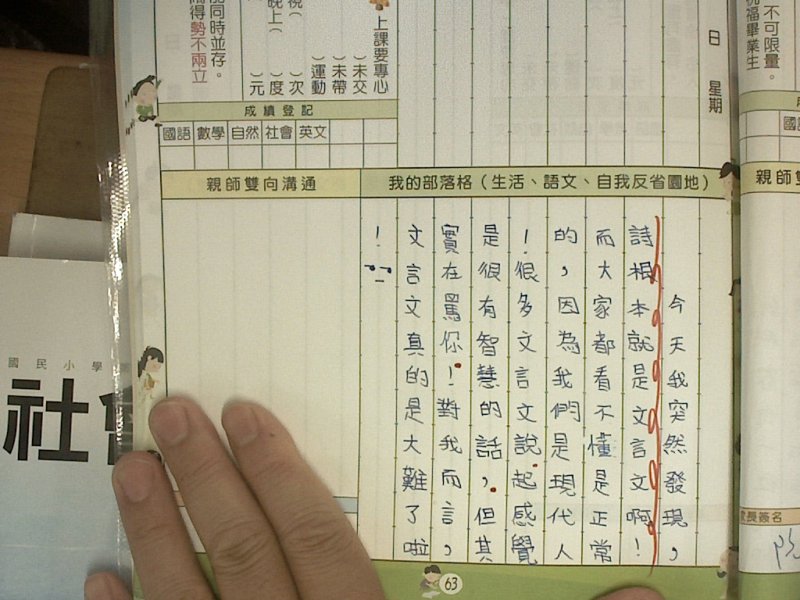 不可限量。
福畢業生
日 星期
上課要專心
）未交
）未帶
）運動
視（ ）次
晚上（ ）度
）元
同時並存。
得勢不兩立
成績登記
國語 數學 自然 社會 英文
親師雙向溝通
我的部落格（生活、語文、自我反省園地）
親師雙
今天我突然發現，
詩根本就是文言文啊！
而大家都看不懂是正常
的，因為我們是現代人
！很多文言文說起感覺
是很有智慧的話，但其
實在罵你！對我而言，
文言文真的是大難了啦
！
長簽名
63
國民小學
社會